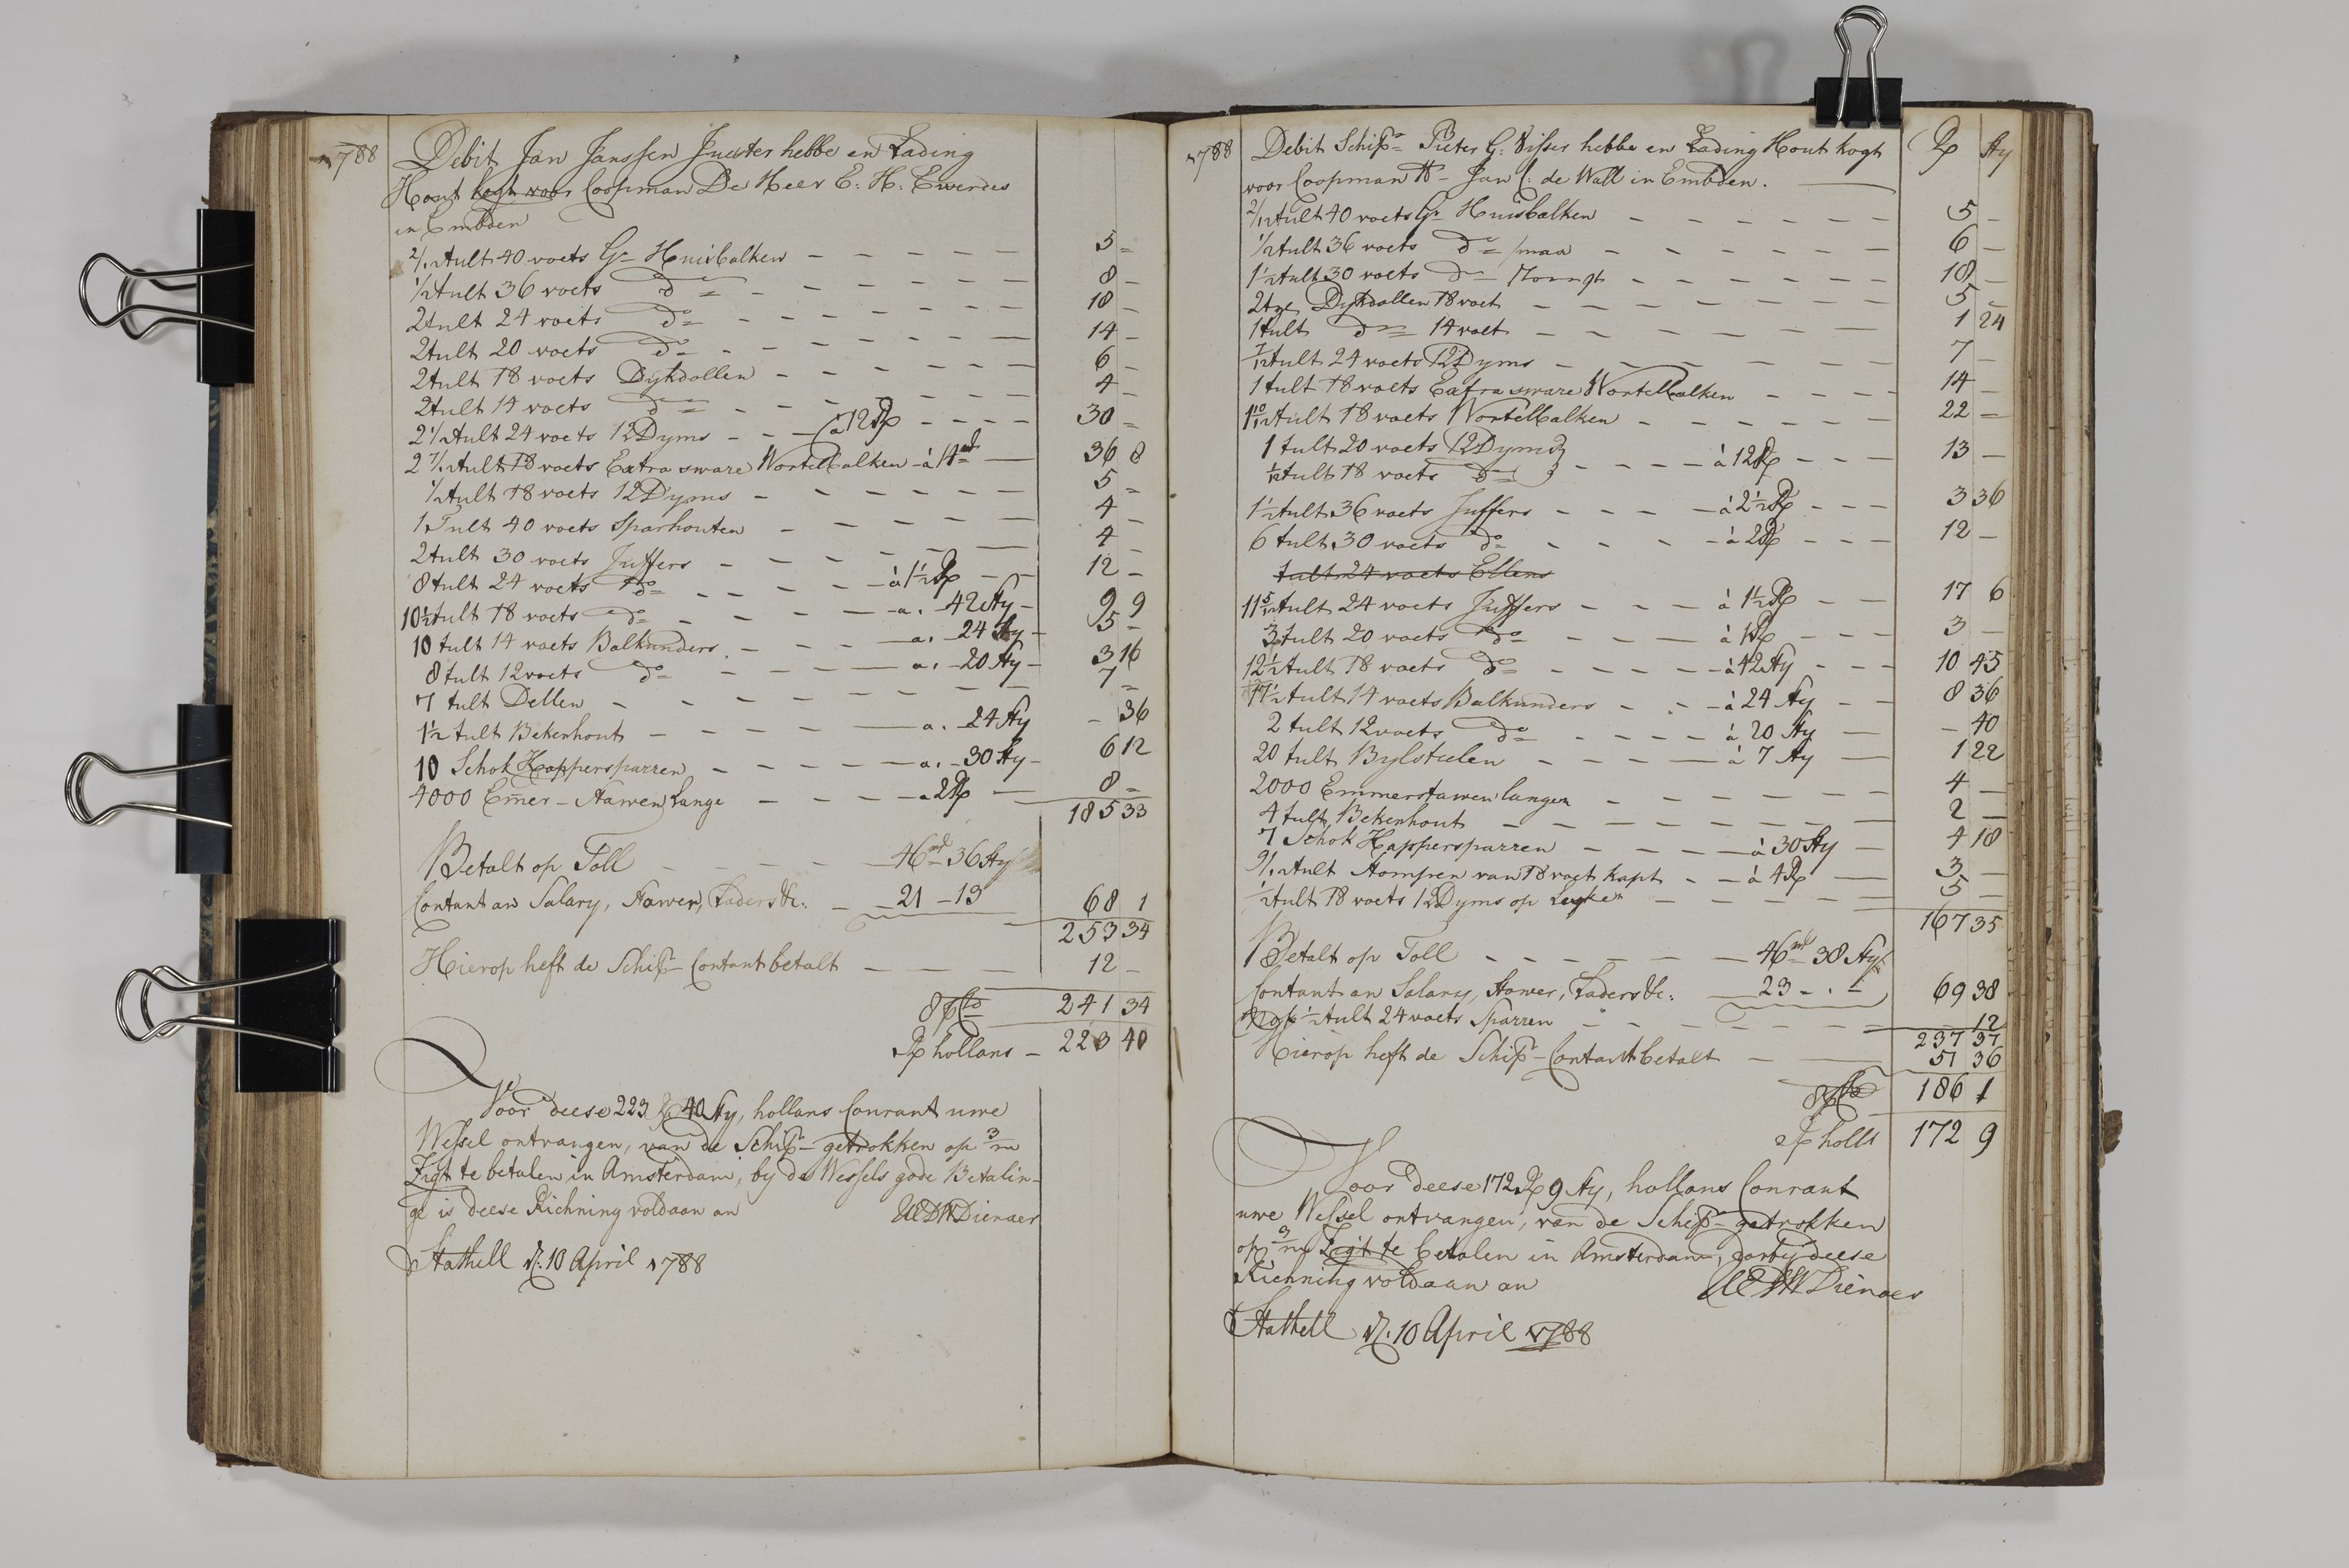 1788 Debit Jan Janssen Juister hebbe en Lading
Hout kogt voor Coopman De Heer E: H: Ewerdes
in Embden
2/12 tult 40 voets Gr= Huisbalken 5 -
1/2 tult 36 voets do 8 -
2 tult 24 voets do 18 -
2 tult 20 voets do 14 -
2 tult 18 voets Dykdollen 6 -
2 tult 14 voets do 4 -
2 1/2 tult 24 voets 12 Dyms a 12 R 30 -
2 7/12 tult 18 voets Extra sware Wortelbalken à 14 rd 36 8
1/2 tult 18 voets 12 Dyms 5 -
1 Tult 40 voets Sparhouten 4 -
2 tult 30 voets Juffers 4 -
8 tult 24 voets do à 1 1/2 R 12 -
10 1/2 tult 18 voets do a. 42 Sty 9 9
10 tult 14 voets Balkunders a. 24 Sty 5 -
8 tult 12 voets do a. 20 Sty 3 16
7 tult Dellen 7 -
1 1/2 tult Bekenhout a. 24 Sty - 36
10 Schok Happersparren a. 30 Sty 6 12
4000 Emer-Stawen lange a 2 R 8 -
185 33
Betalt op Toll 46 rd 36 Sty
Contant an Salary, Hawen, Laders &c: 21 - 13 68 1
253 34
Hierop heft de Schipr Contant betalt 12 -
8 p Cto 241 34
R hollans 223 40
Voor deese 223 R 40 Sty, hollans Courant uwe
Wessel ontvangen, van de Schipr getrokken op 3/m
Zigt te betalen in Amsterdam, by de Wessels gode Betalin-
ge is deese Richning voldaan an UEDWDienaer
Stathell d. 10 April 1788
1788 Debit Schipr Pieter G: Visser hebbe en Lading Hout kogt R Sty
voor Coopman Hr Jan C: de Wall in Embden.
2/12 tult 40 voets Gr= Huisbalken 5 -
1/2 tult 36 voets do smaa 6 -
1 1/2 tult 30 voets do 18 -
2 tyl Dykdollen 18 voet 5 -
1 tult do 14 voet 1 24
7/12 tult 24 voets 12 Dyms 7 -
1 tult 18 voets Extra sware Wortelbalken 14 -
1 10/12 tult 18 voets Wortelbalken 22 -
1 tult 20 voets 12 Dyms
1/12 tult 18 voets do à 12 R 13 -
1 1/2 tult 36 voets Juffers à 2 1/2 R 3 36
6 tult 30 voets do à 2 R 12 -
tult 24 voets Ellens
11 5/12 tult 24 voets Juffers à 1 1/2 R 17 6
3 tult 20 voets do à 1 R 3 -
12 1/2 tult 18 voets do à 42 Sty 10 45
17 1/2 tult 14 voets Balkunders à 24 Sty 8 36
2 tult 12 voets do à 20 Sty - 40
20 tult Bylstielen à 7 Sty 1 22
2000 Emmerstawen langen 4 -
4 tult Bekenhout 2 -
7 Schok Happersparren à 30 Sty 4 18
9/12 tult Stompen van 18 voet kapt à 4 R 3 -
1/2 tult 18 voets 12 Dyms op 5 -
167 35
Betalt op Toll 46 rd 38 Sty
Contant an Salary, Hawer, Laders &c: 23 - . - 69 38
Nog 1/2 tult 24 voets Sparren 12
237 37
Hierop heft de Schipr Contant betalt 51 36
8 p Cto 186 1
R holls 172 9
Voor deese 172 R 9 Sty, hollans Courant
uwe Wessel ontvangen, van de Schipr getrokken
op 3/m Zigt te betalen in Amsterdam, darby deese
Richning voldaan an UEDWDienaer
Stathell d. 10 April 1788